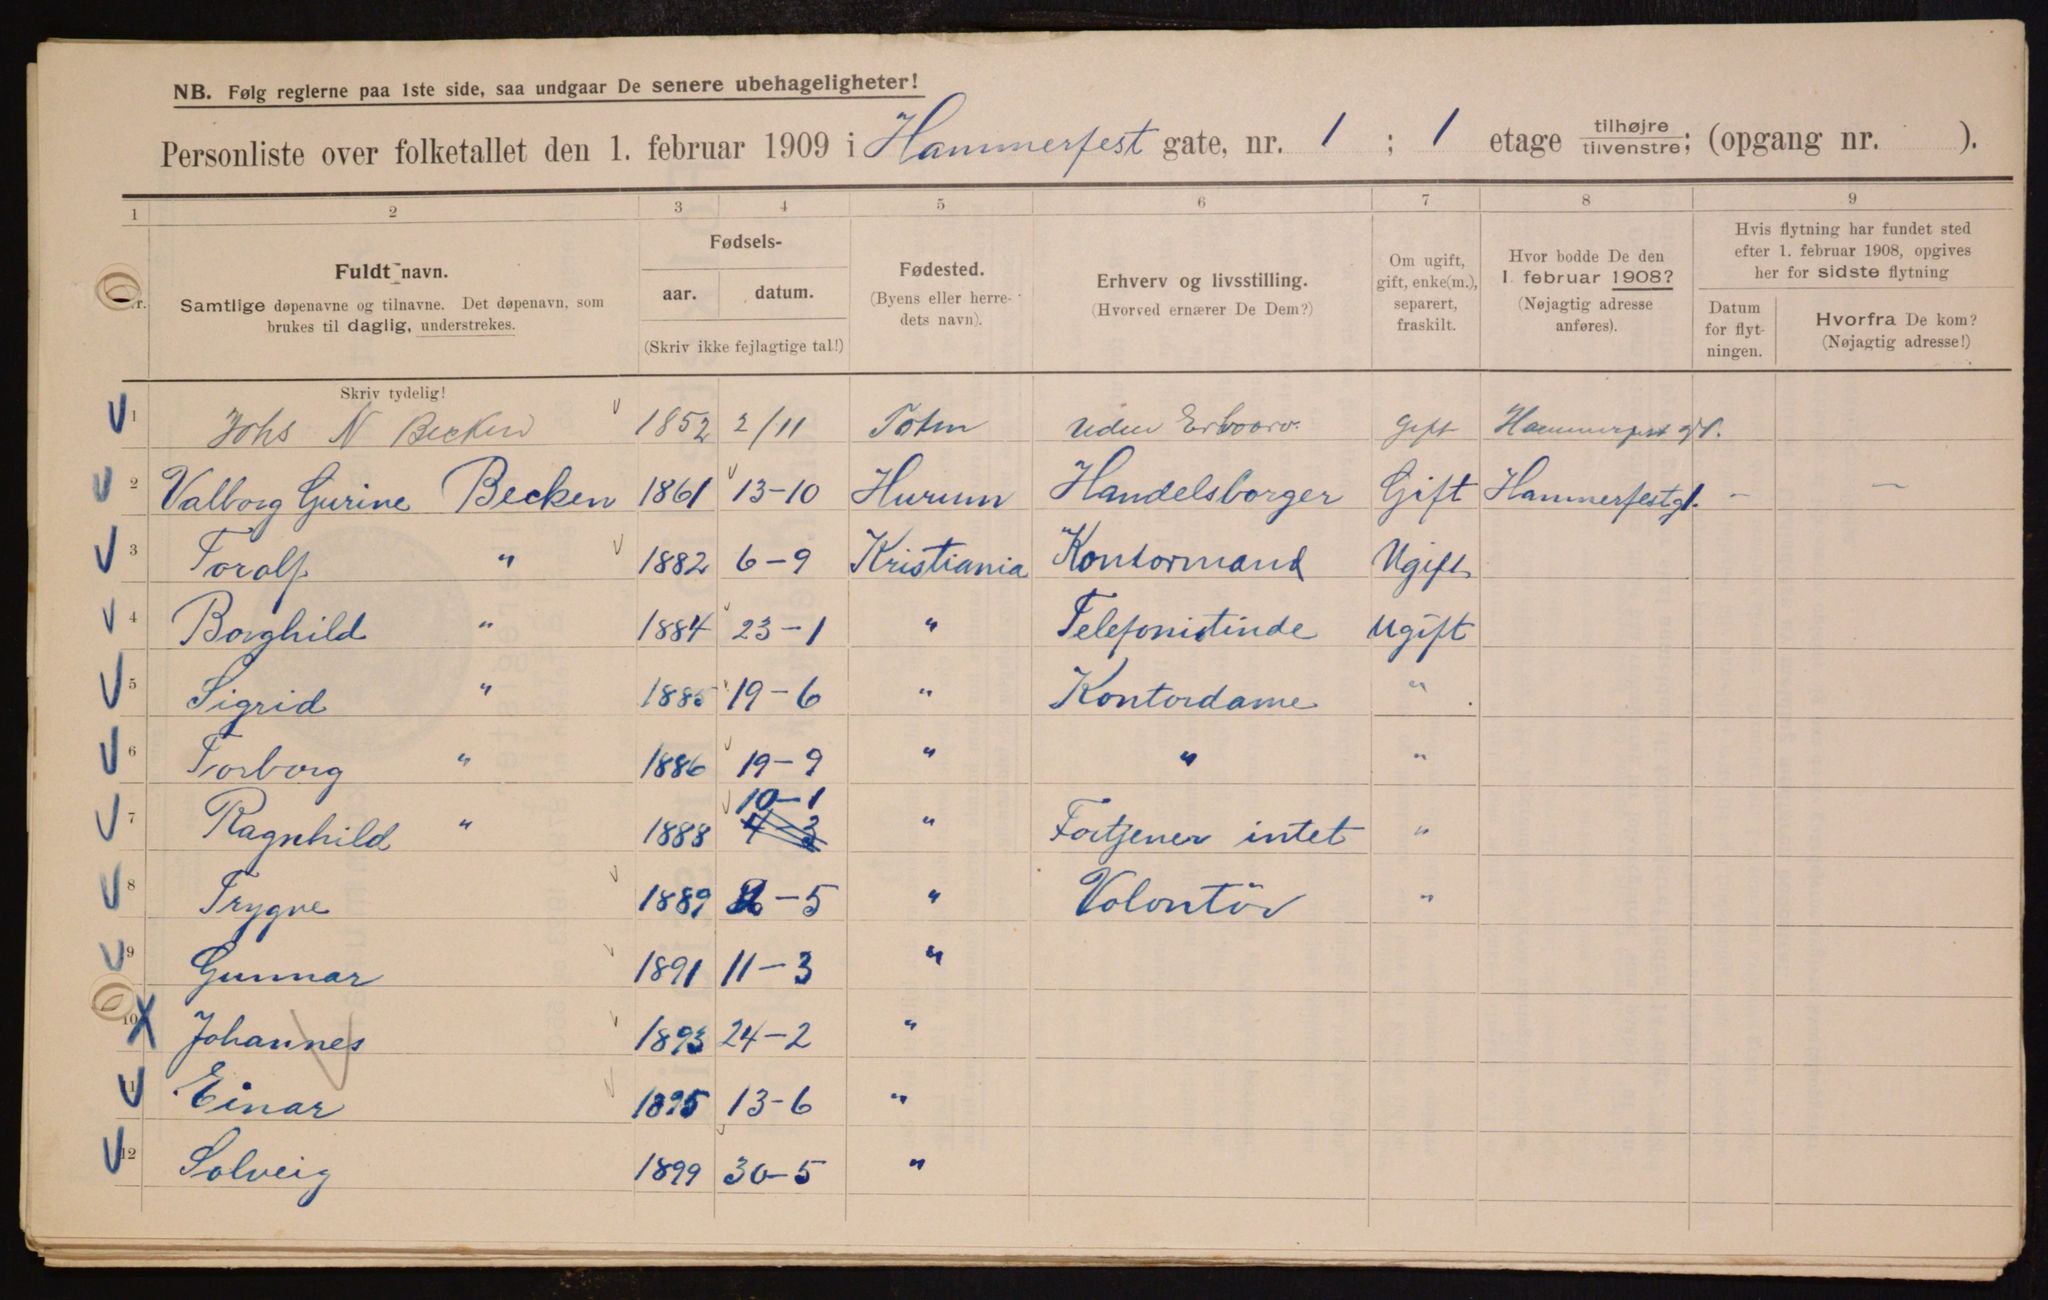 NB. Følg reglerne paa 1ste side, saa undgaar De senere ubehageligheter!
Personliste over folketallet den 1. februar 1909 i Hammerfest gate, nr. 1 ; 1 etage tilhøjre tilvenstre; (opgang nr. ).
1 2 3 4 5 6 7 8 9
Nr.
Fuldt navn.
Samtlige døpenavne og tilnavne. Det døpenavn, som
brukes til daglig, understrekes.
Fødsels-
aar. datum.
(Skriv ikke fejlagtige tal!)
Fødested.
(Byens eller herre-
dets navn).
Erhverv og livsstilling.
(Hvorved ernærer De Dem?)
Om ugift,
gift, enke(m.),
separert,
fraskilt.
Hvor bodde De den
1. februar 1908?
(Nøjagtig adresse
anføres).
Hvis flytning har fundet sted
efter 1. februar 1908, opgives
her for sidste flytning
Datum
for flyt-
ningen.
Hvorfra De kom?
(Nøjagtig adresse!)
Skriv tydelig!
1 Johs N Becken 1852 2/11 Toten Uden Gift Hammerfest gt 1.
2 Valborg Gurine Becken 1861 13-10 Hurum Handelsborger Gift Hammerfestg 1. - -
3 Torolf " 1882 6-9 Kristiania Kontormand Ugift
4 Borghild " 1884 23-1 " Telefonistinde Ugift
5 Sigrid " 1885 19-6 " Kontordame "
6 Torborg " 1886 19-9 " " "
7 Ragnhild " 1888 10-1 " Fortjener intet "
8 Trygve 1889 -5 " Volontør "
9 Gunnar 1891 11-3 "
10 Johannes 1893 24-2 "
11 Einar 1895 13-6 "
12 Solveig 1899 30-5 "